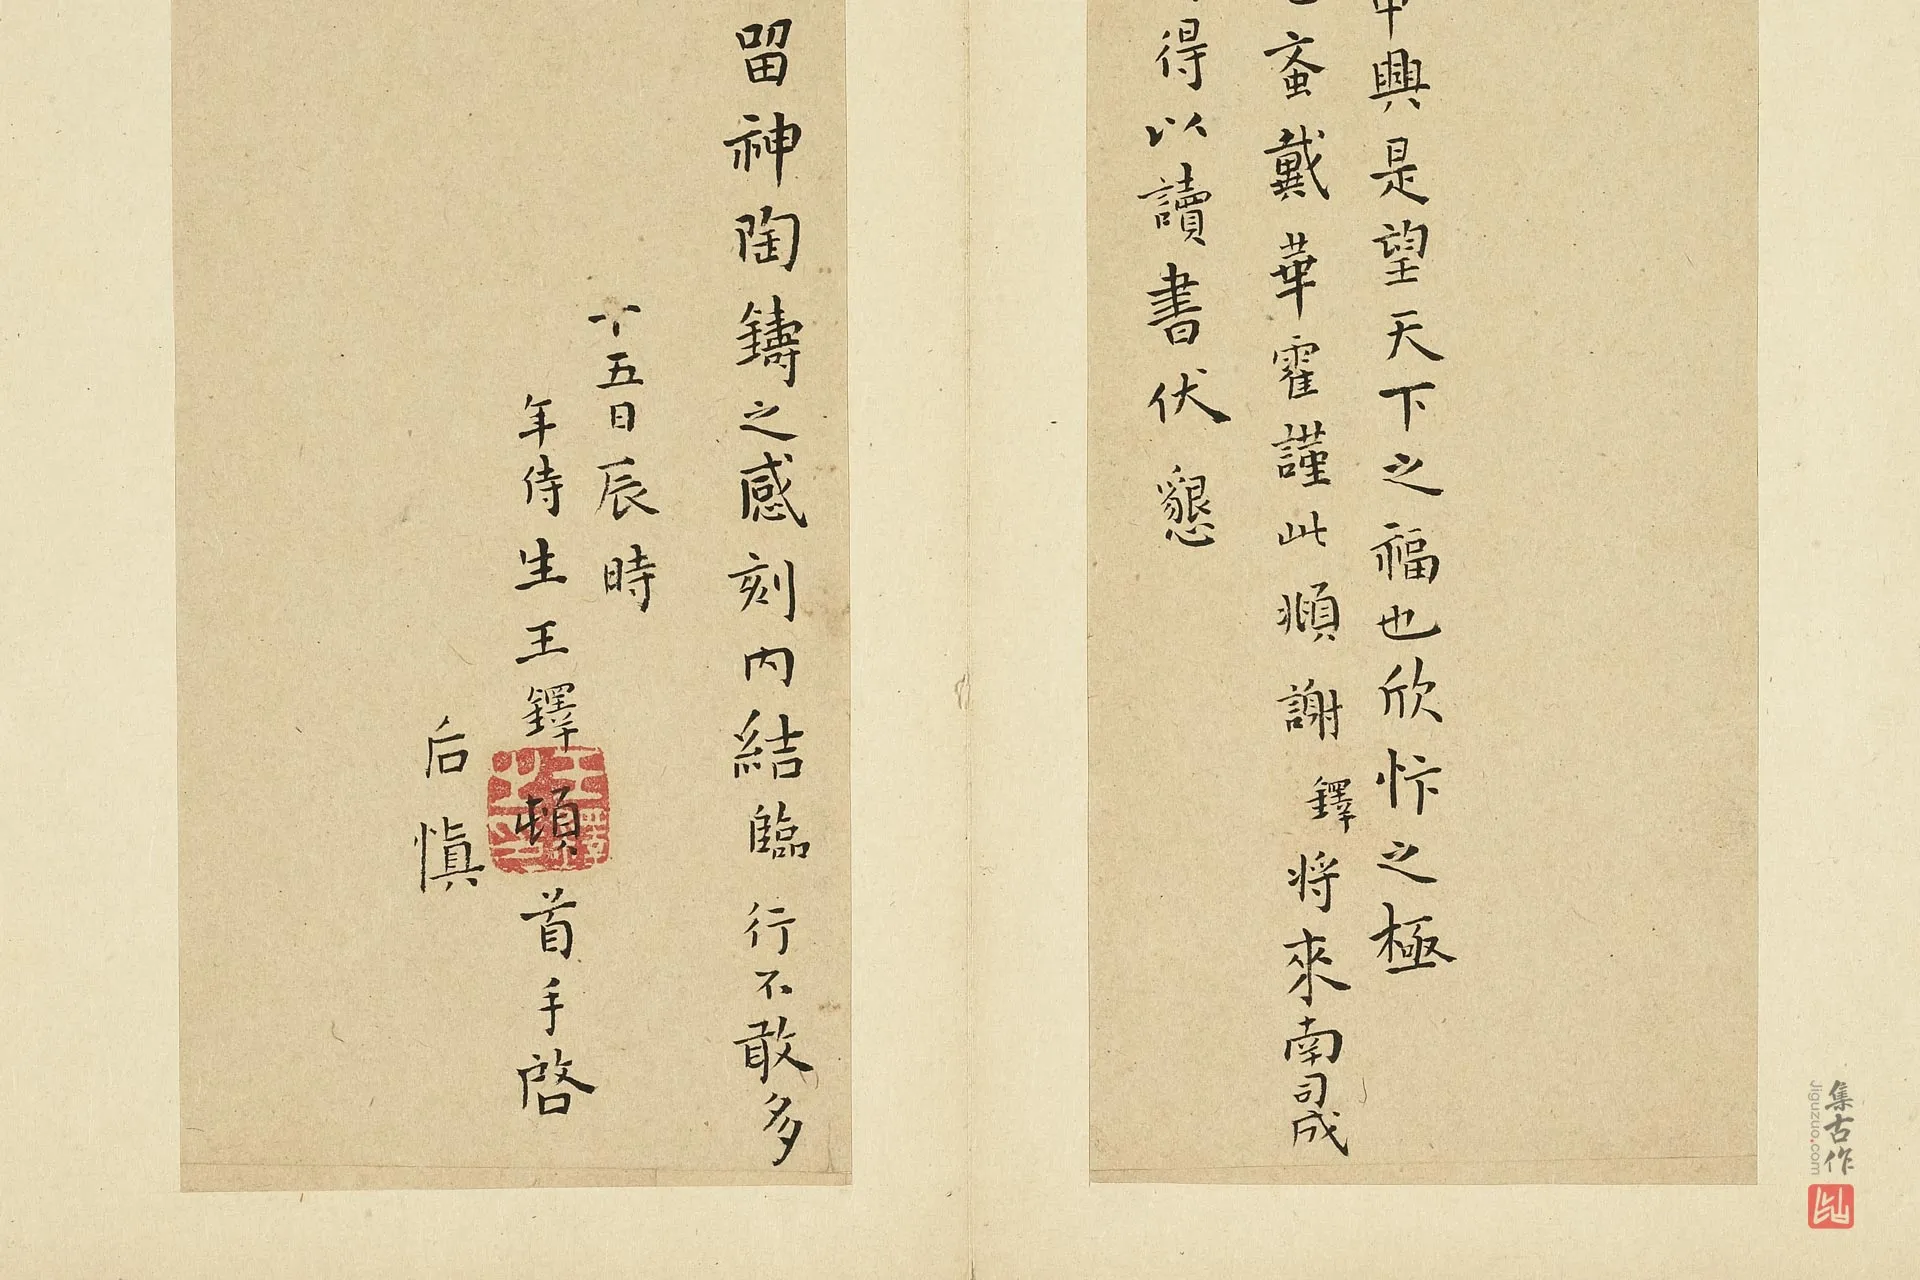 中興是望天下之福也欣忭之極
蚉戴華霍謹此順謝鐸将來南司成
得以讀書伏懇
留神陶鑄之感刻內結臨行不敢多
十五日辰時
年侍生王鐸頓首手啓
后慎
集古作
jiguzuo.com